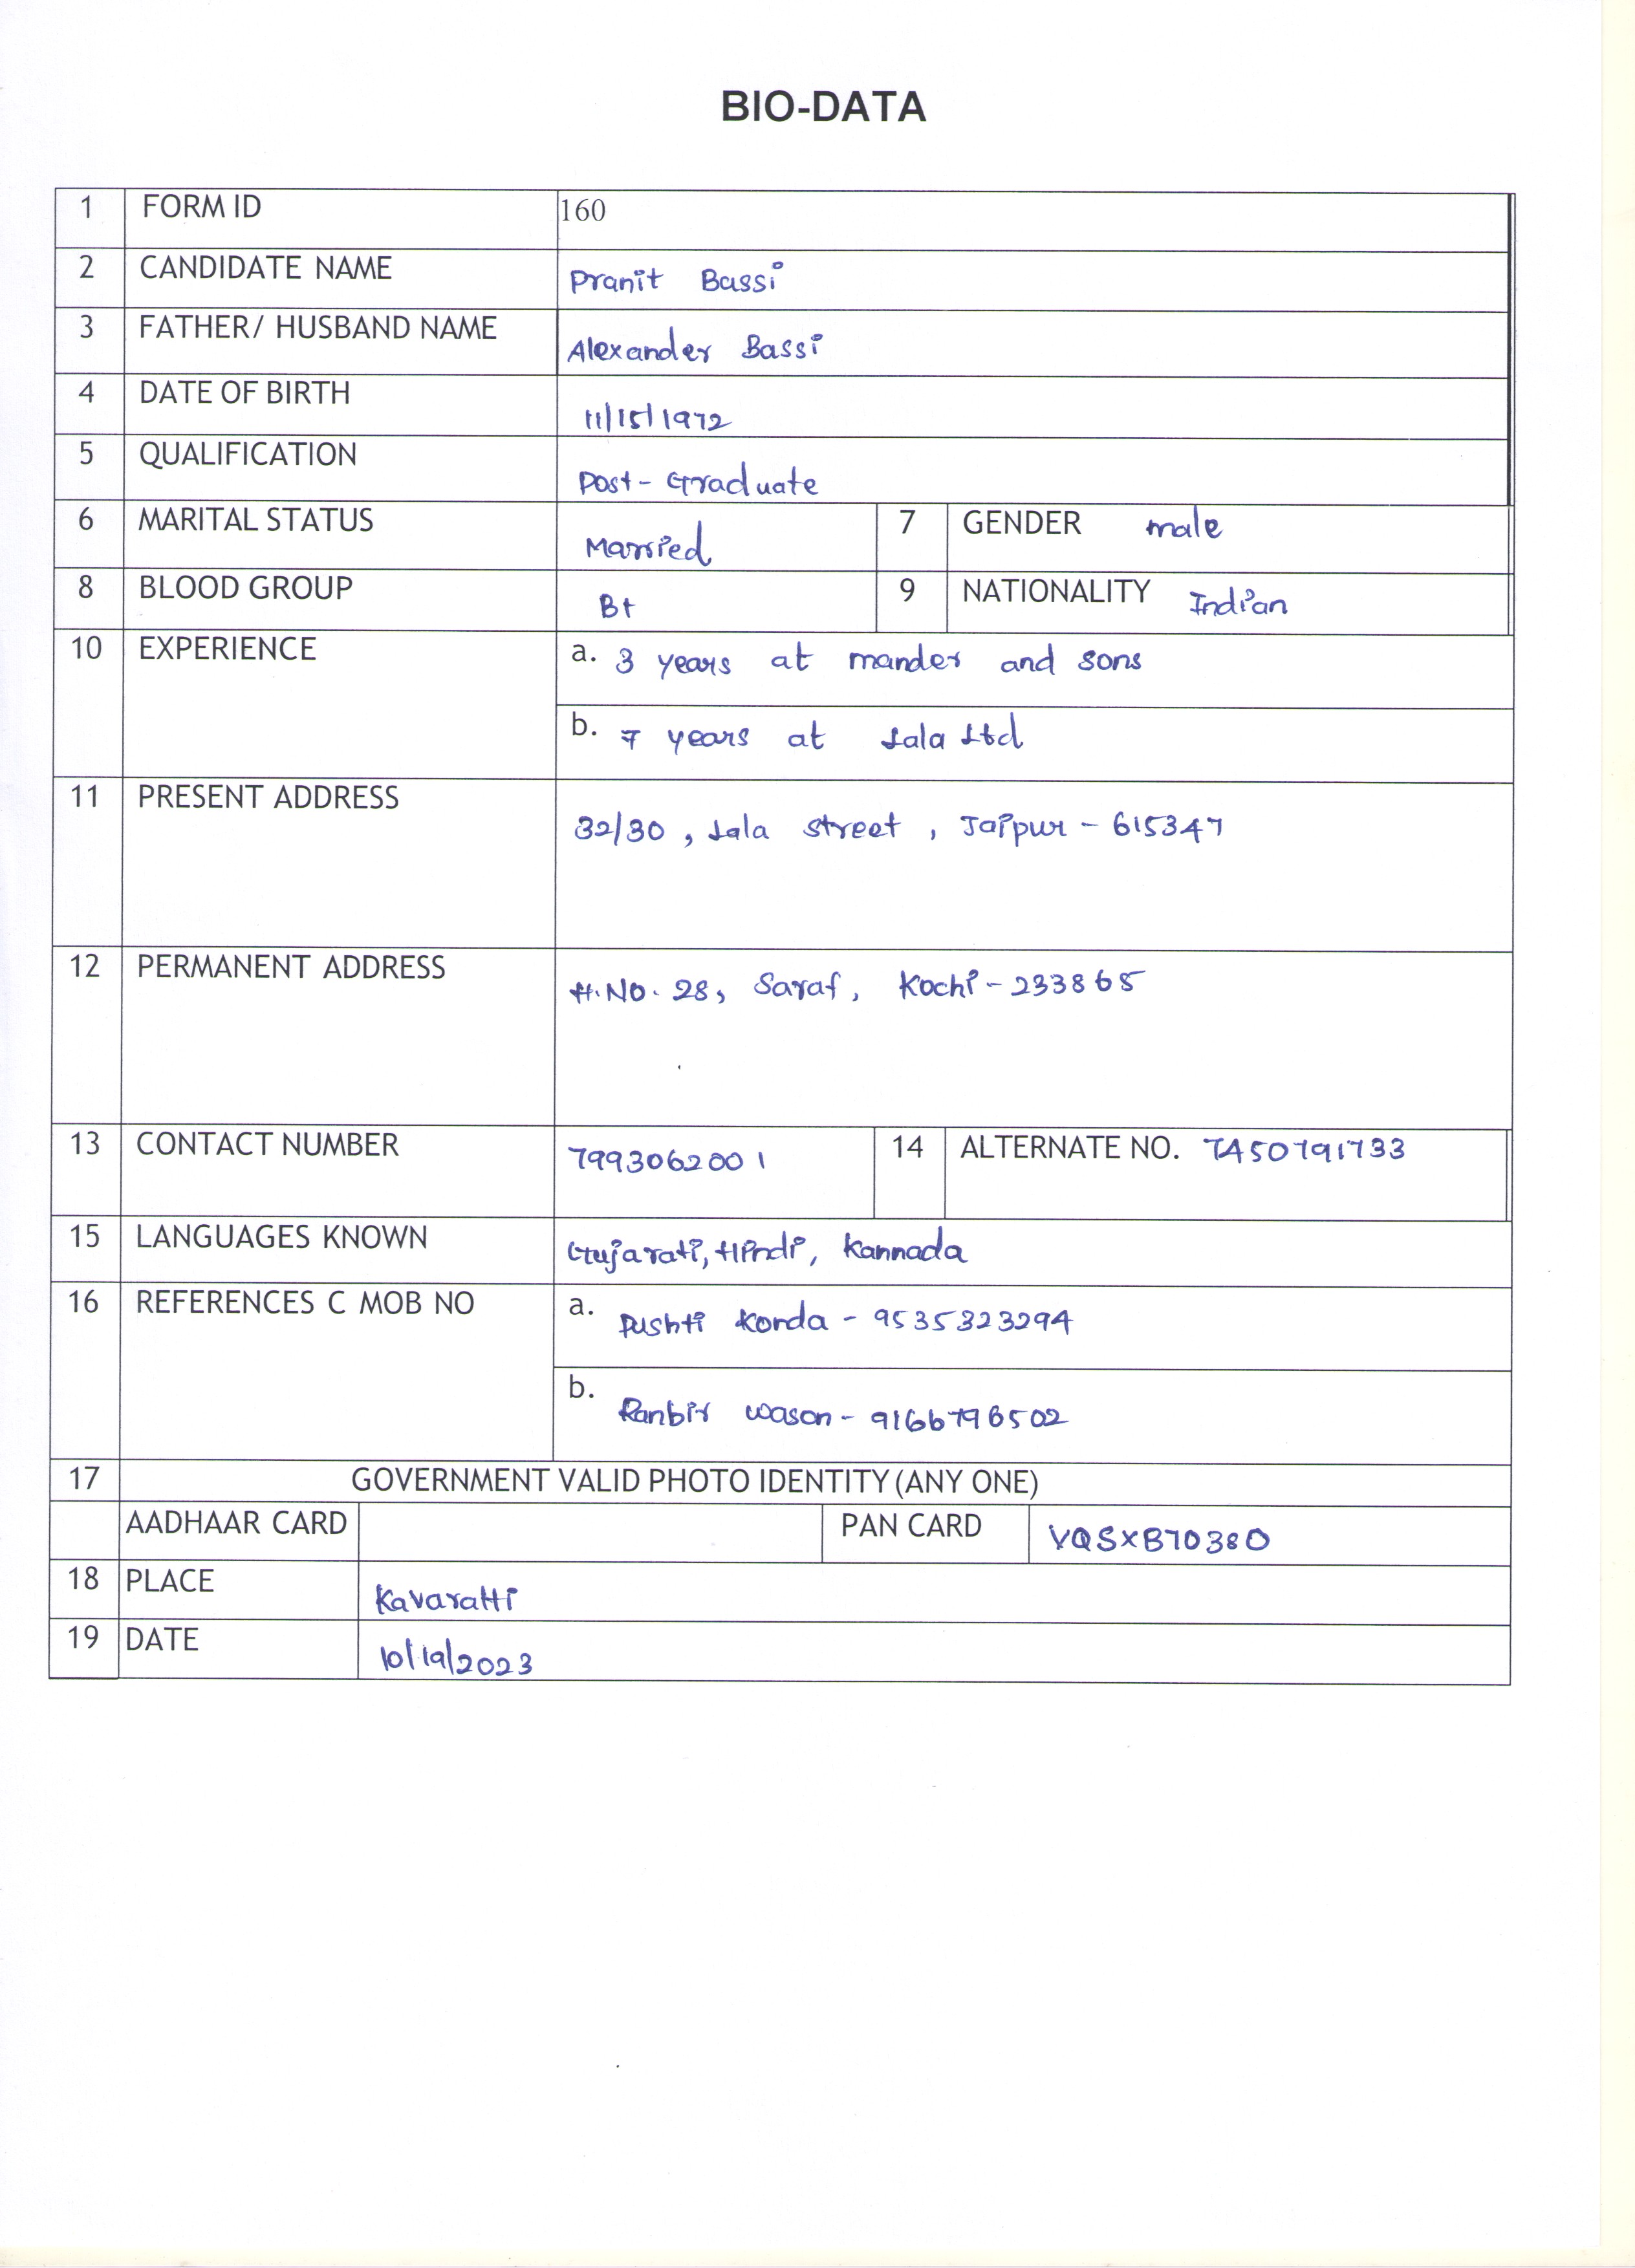 BIO-DATA
1 FORM ID 160
2 CANDIDATE NAME Pranit Bassi
3 FATHER/ HUSBAND NAME Alexander Bassi
4 DATE OF BIRTH 11/15/1972
5 QUALIFICATION Post-Graduate
6 MARITAL STATUS Married 7 GENDER male
8 BLOOD GROUP B+ 9 NATIONALITY Indian
10 EXPERIENCE a. 3 years at mander and sons
b. 7 years at Lala Ltd
11 PRESENT ADDRESS 32/30, Lala street, Jaipur - 615347
12 PERMANENT ADDRESS H.No. 28, Saraf, Kochi - 233865
13 CONTACT NUMBER 7993062001 14 ALTERNATE NO. 7450791733
15 LANGUAGES KNOWN Gujarati, Hindi, Kannada
16 REFERENCES C MOB NO a. Pushti Korda - 9535323294
b. Ranbir wason - 9166796502
17 GOVERNMENT VALID PHOTO IDENTITY (ANY ONE)
AADHAAR CARD PAN CARD VQSXB7038O
18 PLACE Kavaratti
19 DATE 10/19/2023